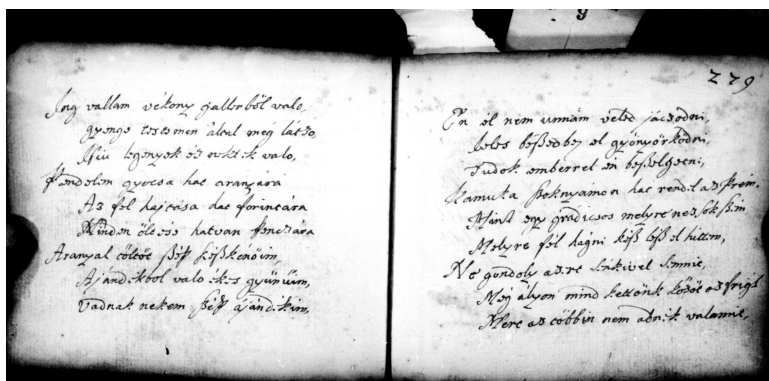 Ing vallam vékony gallerból valo,
gyenge testemen által meg látzo,
Ifiu legenyek es nektek valo,
Pendelem gyocsa hat aranyára
Az fel hajtása hat forintára
Minden öltés hatvan penzára
Aranyal töltöt szép
Ajándikbol valo ékes gyŭrŭim,
Vadnak nekem szép ájándikim,
279
En el nem unnám veled jáczodni,
beszedbe, el gyönyörködni,
Tudok emberrel en beszelgetni,
Kamuka szoknyámon hat rendil az prém,
Mint egy grádicsos melyre nez sok szem
Melyre fel hágni kész lész el hittem,
Ne gondoly azzre senkivel semmit,
Meg ályon mind kettönk közöt az frigj
Mert az többin nem adnik valamit,